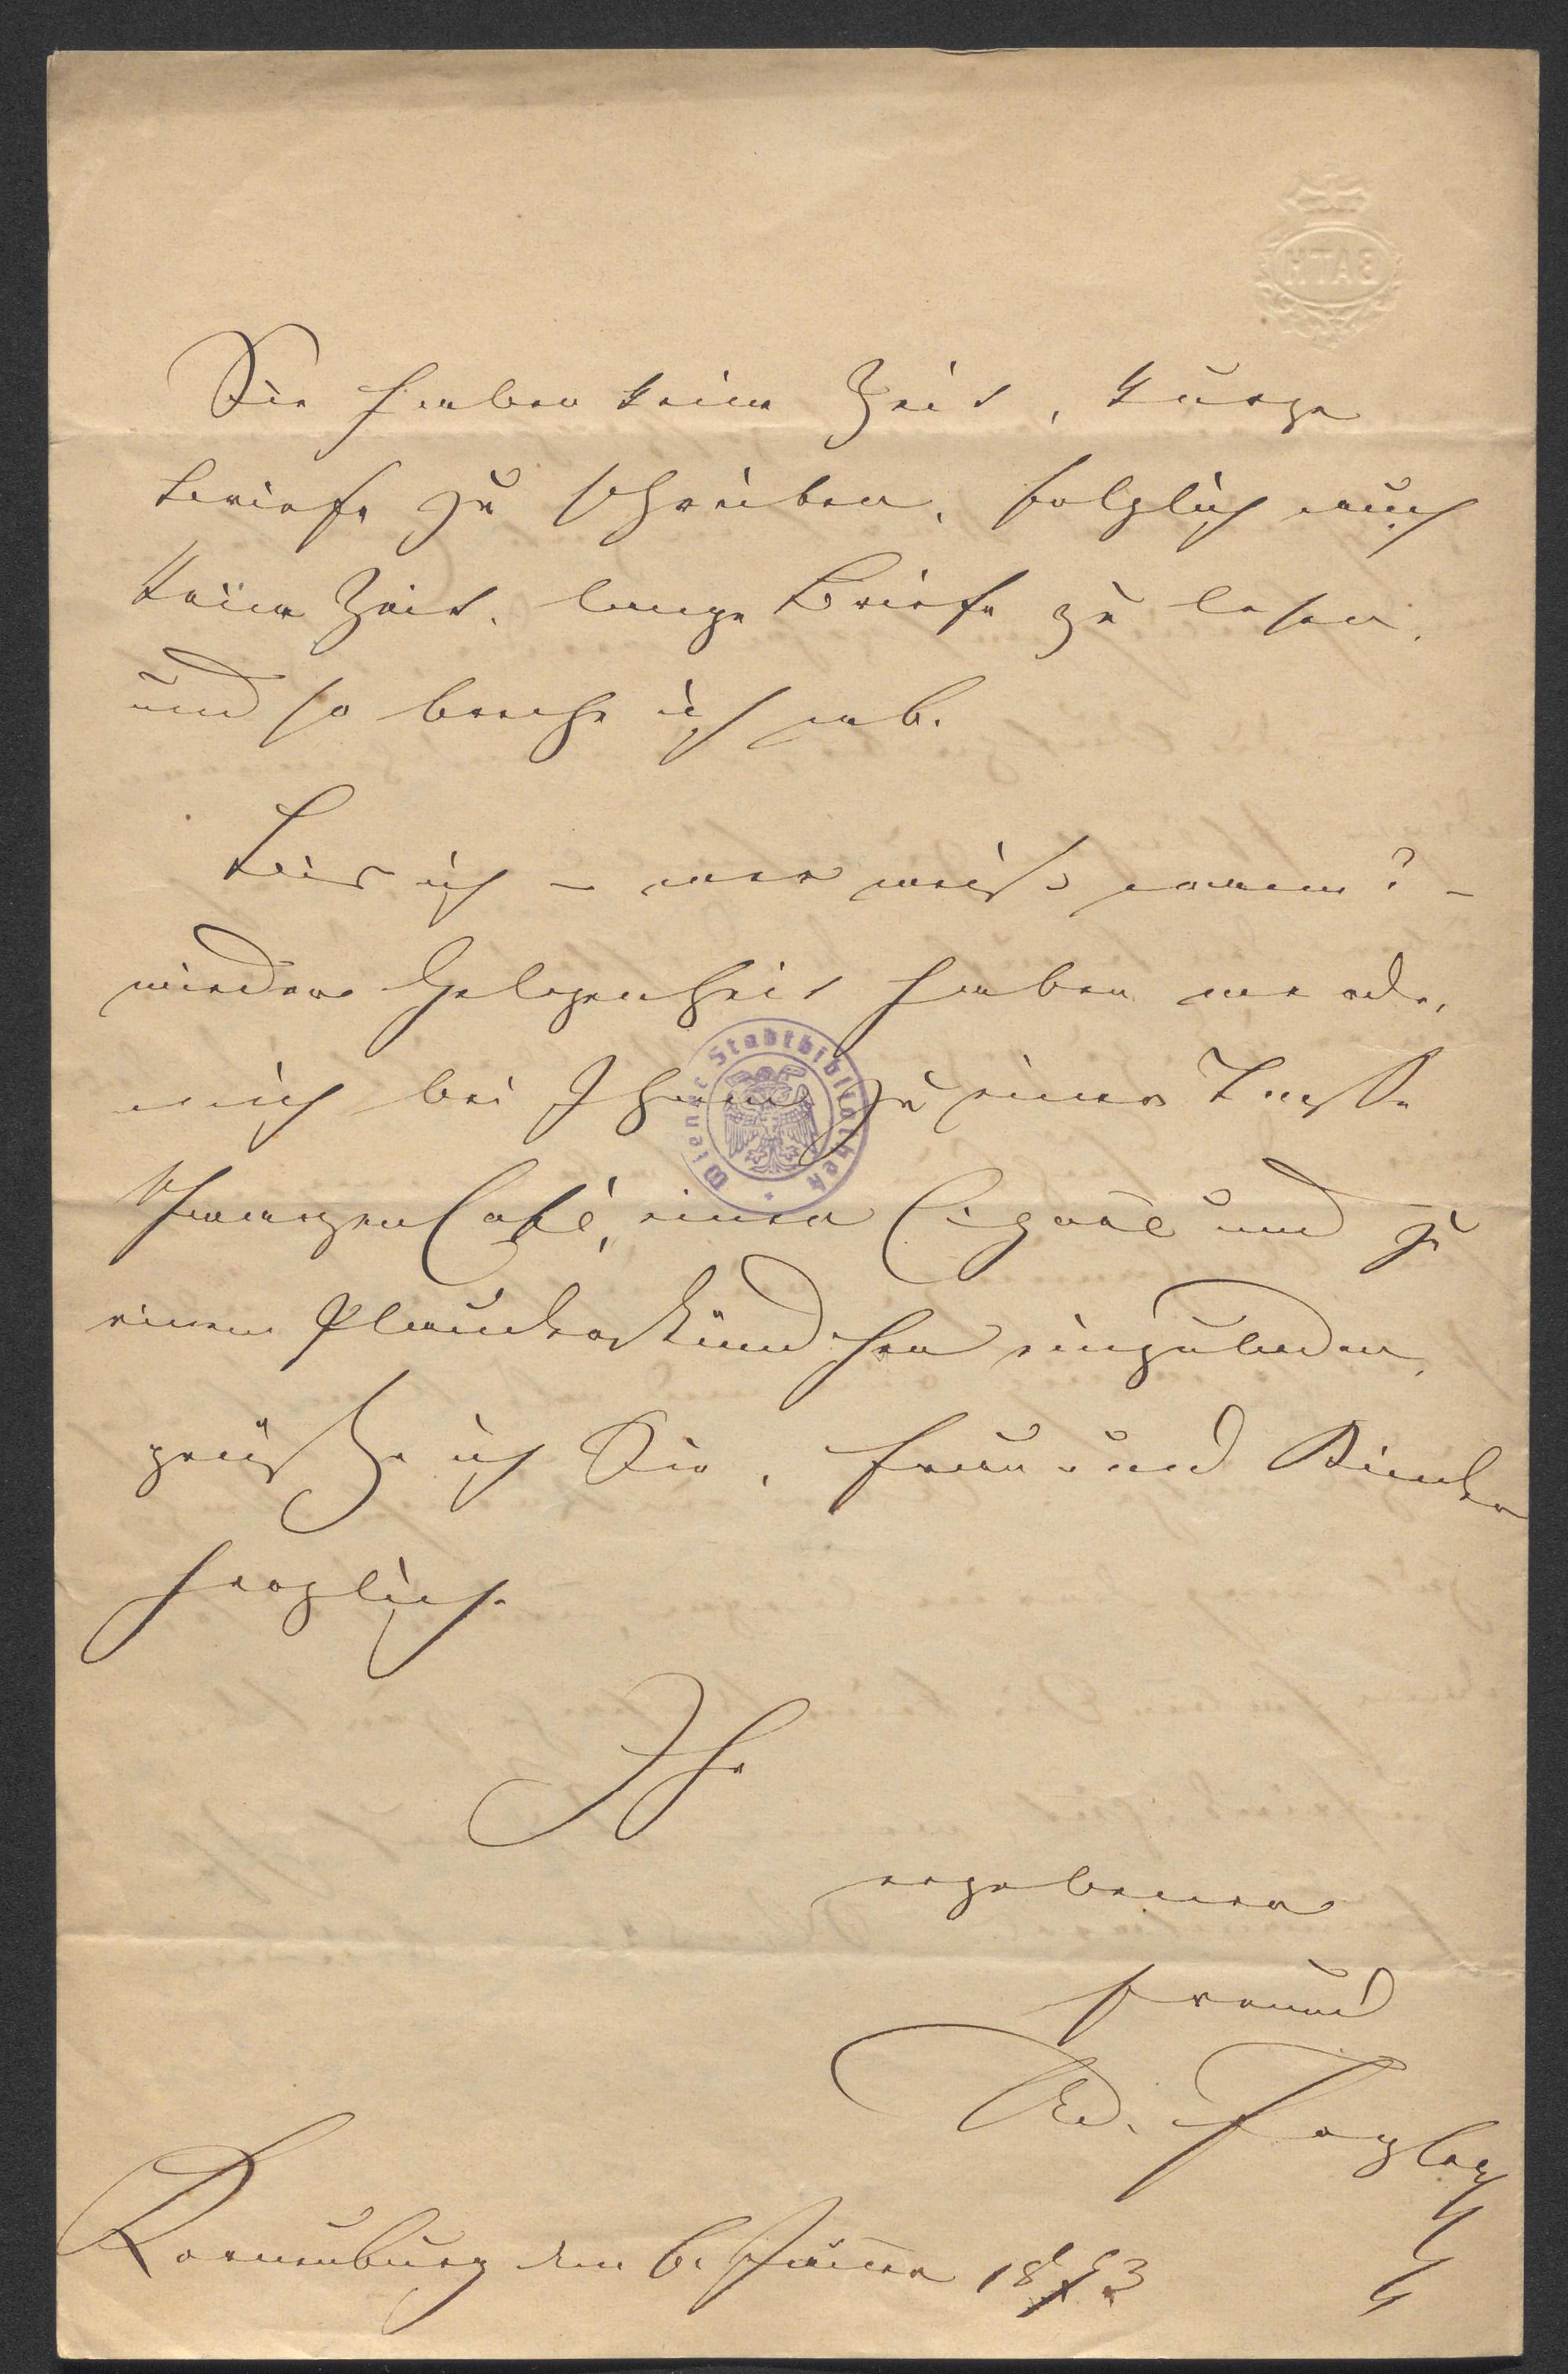 BATH
Sie haben keine Zeit, kurze
Briefe zu schreiben, folglich auch
keine Zeit, lange Briefe zu lesen,
und so breche ich ab.
Bis ich – wer weiß wann? –
wieder Gelegenheit haben werde,
mich bei Ihnen zu einer Tasse
schwarzen Café, einer Cigare und zu
einem Plauderstündchen einzuladen,
grüße ich Sie, Frau und Kinder
herzlich.
Ihr
ergebener
Freund
Ed.
Korneuburg den 6. Jänner 1853
Wiener Stadtbibliothek